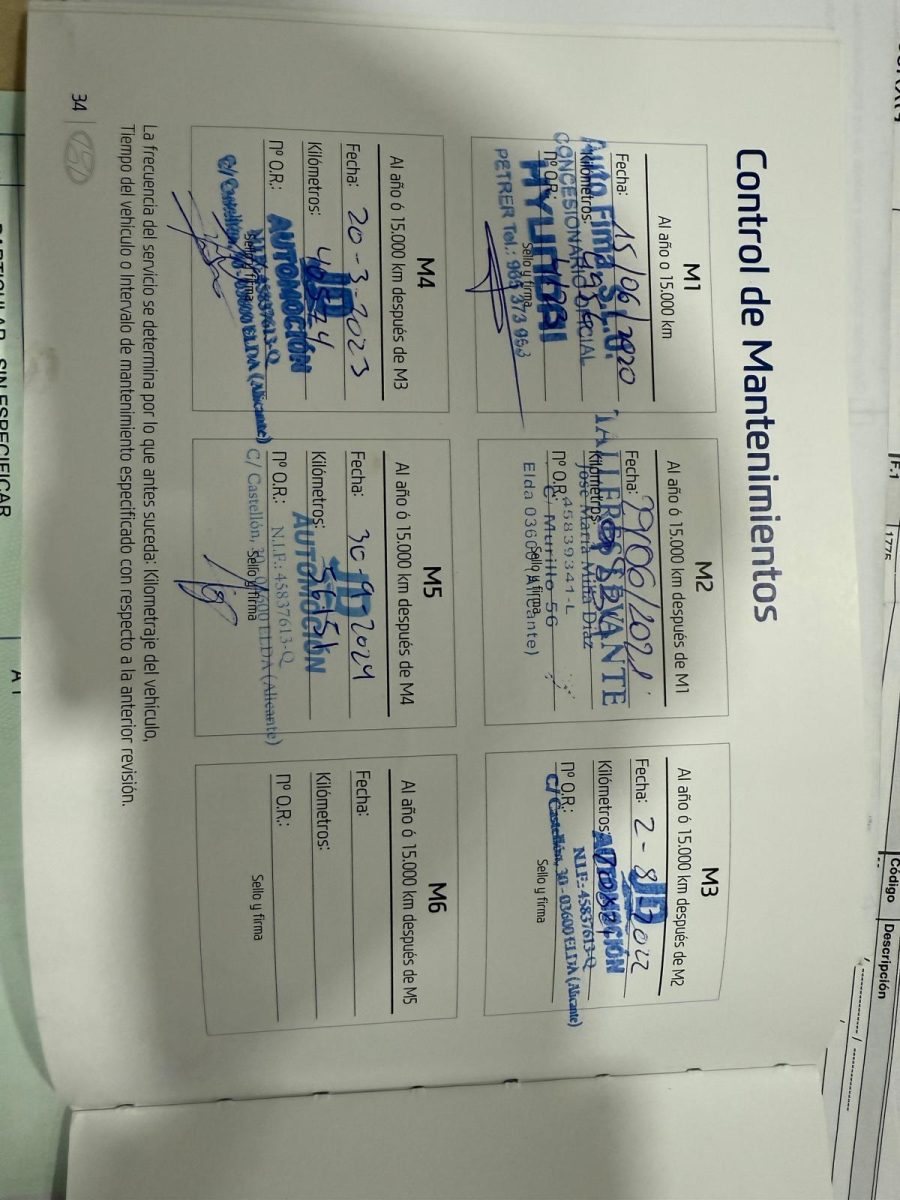 Control de Mantenimientos
M1
Al año o 15.000 km
Fecha: 15/06/2020
Kilómetros:
nº O.R.:
Sello y firma
Auto Fima S.L.U.
CONCESIONARIO OFICIAL
HYUNDAI
PETRER Tel.: 965 373 953
M2
Al año ó 15.000 km después de M1
Fecha: 29/06/2021
Kilómetros:
nº O.R.:
Sello y firma
TALLERES LEVANTE
José María Milla Díaz
45839341-L
C/ Murillo 56
Elda 03600 (Alicante)
M3
Al año ó 15.000 km después de M2
Fecha: 2-8-2022
Kilómetros:
nº O.R.:
Sello y firma
JD
AUTOMOCIÓN
N.I.F.: 45837613-Q
C/ Castellón, 30 - 03600 ELDA (Alicante)
M4
Al año ó 15.000 km después de M3
Fecha: 20-3-2023
Kilómetros: 40524
nº O.R.:
Sello y firma
JD
AUTOMOCIÓN
N.I.F.: 45837613-Q
C/ Castellón, 30 - 03600 ELDA (Alicante)
M5
Al año ó 15.000 km después de M4
Fecha: 30-9-2024
Kilómetros: 56151
nº O.R.:
Sello y firma
JD
AUTOMOCIÓN
N.I.F.: 45837613-Q
C/ Castellón, 30 - 03600 ELDA (Alicante)
M6
Al año ó 15.000 km después de M5
Fecha:
Kilómetros:
nº O.R.:
Sello y firma
La frecuencia del servicio se determina por lo que antes suceda: Kilometraje del vehículo,
Tiempo del vehículo o Intervalo de mantenimiento especificado con respecto a la anterior revisión.
34
F.1
1775
Código
Descripción
PARTICULAR - SIN ESPECIFICAR